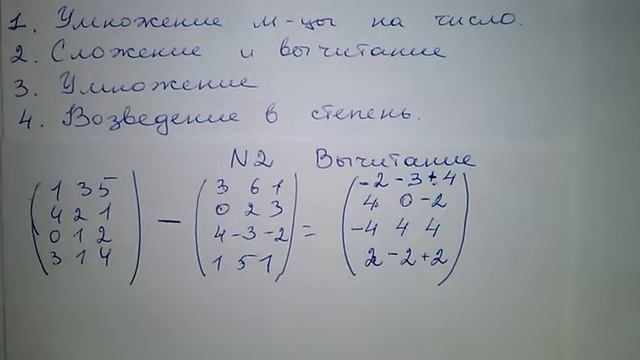 1. Умножение м-цы на число.
2. Сложение и вычитание
3. Умножение
4. Возведение в степень.
N2 Вычитание
1 3 5 3 6 1 -2 -3 + 4
4 2 1 — 0 2 3 = 4 0 -2
0 1 2 4 -3 -2 -4 4 4
3 1 4 1 5 1 2 -2 +2